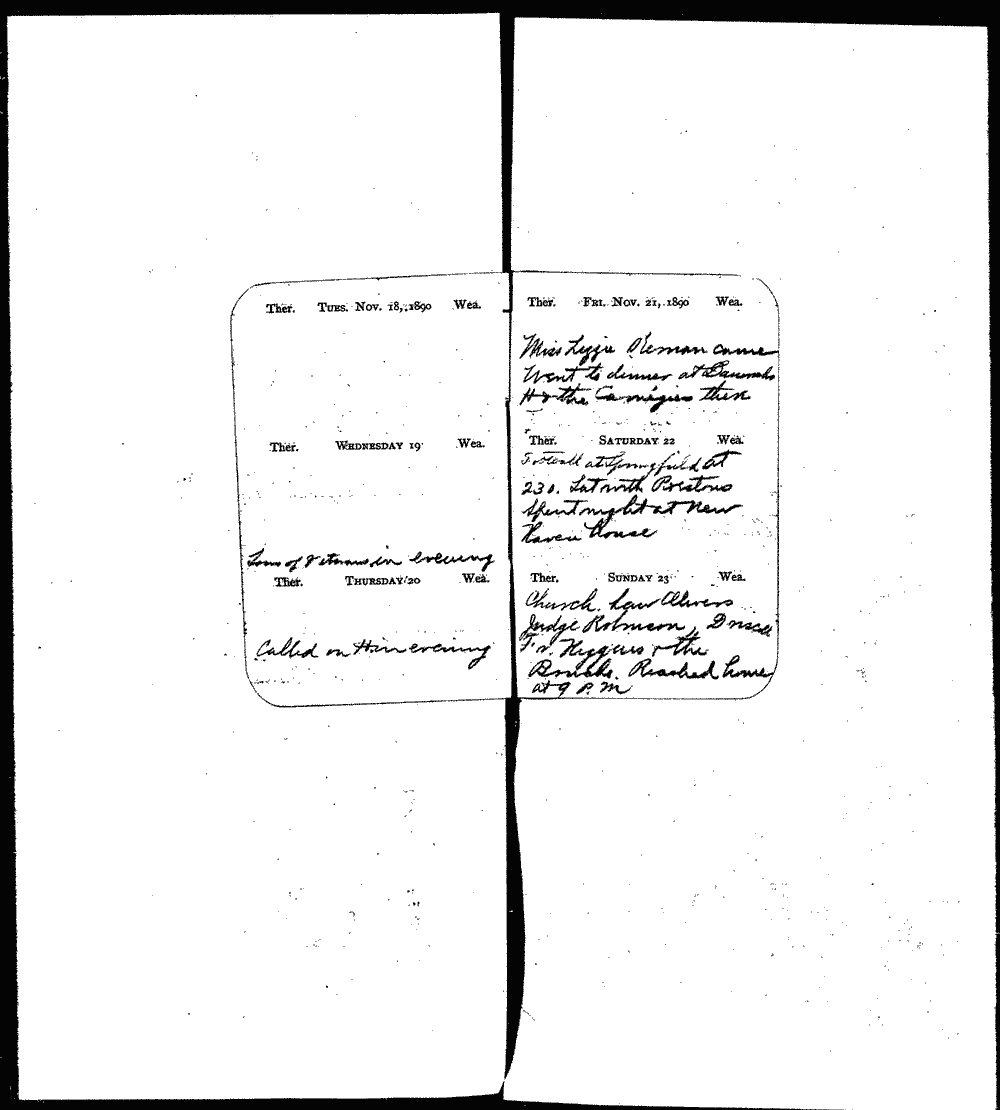 Ther. TUES. NOV. 18, 1890 Wea.
Ther. WEDNESDAY 19 Wea.
Sons of Veterans in evening
Ther. THURSDAY 20 Wea.
Called on H in evening
Ther. FRI. NOV. 21, 1890 Wea.
Miss Lizzie came
Went to dinner at
H & the Carnegies there
Ther. SATURDAY 22 Wea.
Football at Springfield at
230. Sat with Prestons
Spent night at New
Haven House
Ther. SUNDAY 23 Wea.
Church. Saw Olivers
Judge Robinson, Driscoll
Higgins & the
Reached home
at 9 P.M